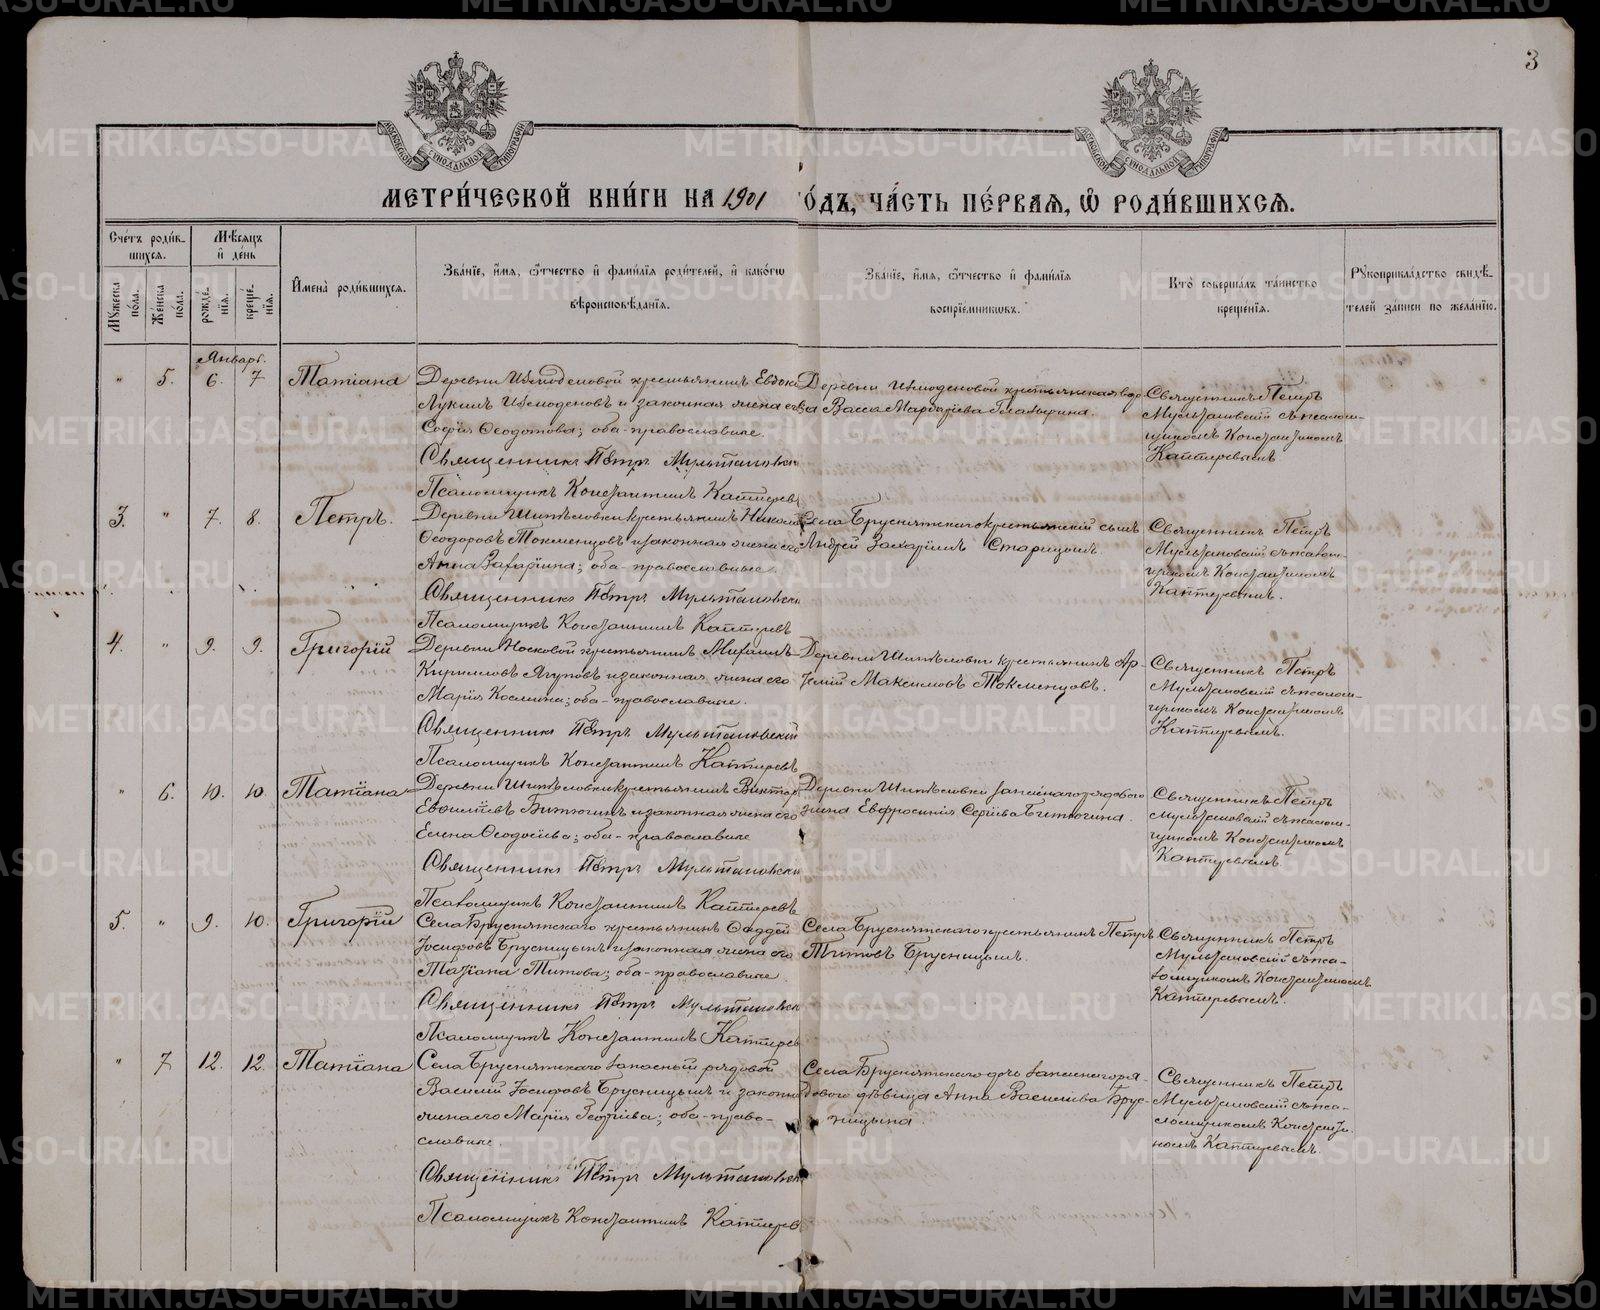 3
МЕТРИ́ЧЕСКОЙ КНИ́ГИ НА 1901 ГО́ДЪ, ЧА́СТЬ ПЕ́РВАЯ, Ѡ РОДИ́ВШИХСЯ.
Сче́тъ роди́вшихся.
Му́жеска по́ла.
Же́нска по́ла.
Мѣ́сяцъ и҆ де́нь
рожде́нїя.
креще́нїя.
И҆мена̀ роди́вшихся.
Зва́нїе, и҆́мя, ѻ҆́тчество и҆ фами́лїя роди́телей, и҆ како́гѡ вѣроисповѣ́данїя.
Зва́нїе, и҆́мя, ѻ҆́тчество и҆ фами́лїя воспрїе́мникѡвъ.
Кто̀ соверша́лъ та́инство креще́нїя.
Рꙋкоприкла́дство свидѣ́телей за́писи по жела́нїю.
Январь.
" 5. 6. 7 Татіана
крестьянинъ
и законная жена его
Софія Ѳеодотова; оба-православные.
Священникъ Петръ Мультановскі
Псаломщикъ Константинъ Каптерев
Священникъ Петръ
Мультановскій съ псалом-
щикомъ Константиномъ
Каптеревымъ
3. " 7. 8. Петръ.
Деревни Шипѣловки крестьянинъ Никола
Ѳеодоровъ Токменцовъ и законная жена его
Анна Захаріина; оба-православные.
Священникъ Петръ Мультановскі
Псаломщикъ Константинъ Каптеревъ
Села Бруснятскаго крестьянскій сынъ
Андрей Захаріинъ Старицынъ.
Священникъ Петръ
Мультановскій съ псалом-
щикомъ Константиномъ
Каптеревымъ.
4. " 9. 9. Григорій
Деревни Носковой крестьянинъ Михаилъ
Кирилловъ Ягуповъ и законная жена его
Марія Космина; оба-православные.
Священникъ Петръ Мультановскій
Псаломщикъ Константинъ Каптеревъ
Деревни Шипѣловки крестьянинъ Ар-
темій Максимовъ Токменцовъ.
Священникъ Петръ
Мультановскій съ псалом-
щикомъ Константиномъ
Каптеревымъ.
" 6. 10. 10. Татіана
Деревни Шипѣловки крестьянинъ Виктор
Евфиміевъ Битюгинъ и законная жена его
Елена Ѳеодосіева; оба-православные
Священникъ Петръ Мультановскі
Псаломщикъ Константинъ Каптеревъ
Деревни Шипѣловки запаснаго рядового
жена Евфросинія Сергіева Битюгина.
Священникъ Петръ
Мультановскій съ псалом-
щикомъ Константиномъ
Каптеревымъ.
5. " 9. 10. Григорій
Села Бруснятскаго крестьянинъ Ѳаддей
Іосифовъ Брусницынъ и законная жена его
Татіана Титова; оба-православные
Священникъ Петръ Мультановскі
Псаломщикъ Константинъ Каптерев
Села Бруснятскаго крестьянинъ Петръ
Титовъ Брусницынъ.
Священникъ Петръ
Мультановскій съ пса-
ломщикомъ Константиномъ
Каптеревымъ.
" 7 12. 12. Татіана
Села Бруснятскаго запасный рядовой
Василій Іосифовъ Брусницынъ и законна
жена его Марія Георгіева; оба-право-
славные.
Священникъ Петръ Мультановскі
Псаломщикъ Константинъ Каптерев
Села Бруснятскаго дочь запаснаго ря-
дового дѣвица Анна Васильева Брус-
ницына.
Священникъ Петръ
Мультановскій съ пса-
ломщикомъ Константи-
номъ Каптеревымъ.
METRIKI.GASO-URAL.RU